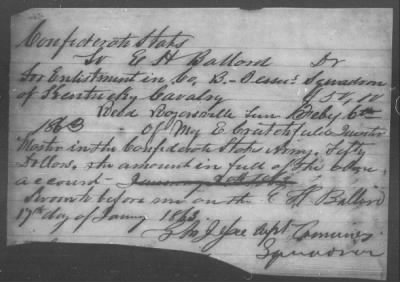 Confederate States
To E H Ballard Dr
For Enlistment in Co. B. Jessee's Squadron
of Kentucky Cavalry $50,00
Recd Rogersville Tenn Feby 6th
1863 of Maj E Crutchfield Quarter
Master in the Confederate States Army, Fifty
Dollars, the amount in full of the above
account
Swore to before me on the E H Ballard
17th day of 1863
Jessee Capt Comdg
Squadron